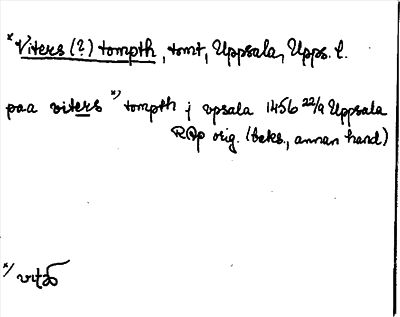 *Viters (?) tompth, tomt, Uppsala, Upps. l.
paa viters *) tompth j vpsala 1456 22/9 Uppsala
RAp orig. (beks., annan hand)
*/